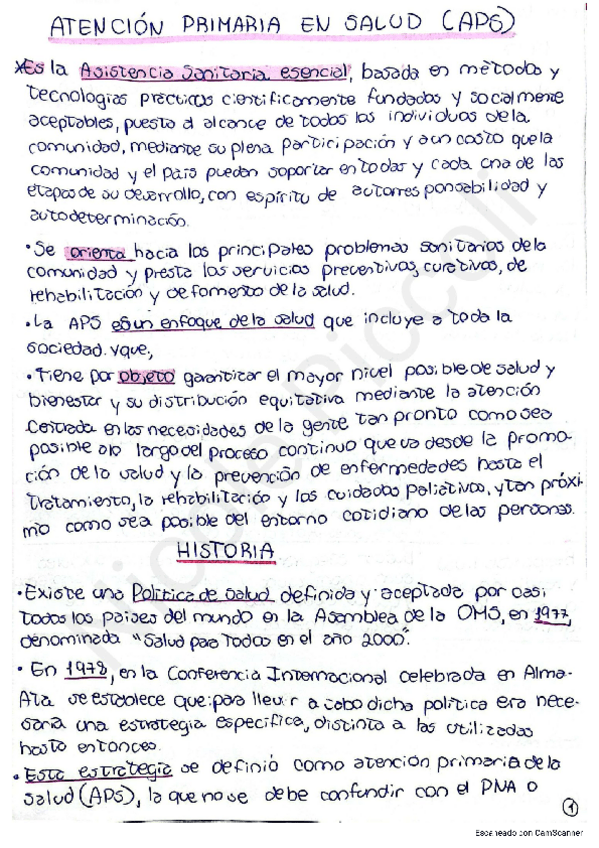 ATENCIÓN PRIMARIA EN SALUD (APS)
*Es la Asistencia Sanitaria esencial, basada en métodos y
tecnologías prácticas científicamente fundados y socialmente
aceptables, puesta al alcance de todos los individuos de la
comunidad, mediante su plena participación y a un costo que la
comunidad y el país puedan soportar en todas y cada una de las
etapas de su desarrollo, con espíritu de autorresponsabilidad y
autodeterminación.
• Se orienta hacia los principales problemas sanitarios de la
comunidad y presta los servicios preventivos, curativos, de
rehabilitación y de fomento de la salud.
• La APS es un enfoque de la salud que incluye a toda la
sociedad. y que,
• Tiene por objeto garantizar el mayor nivel posible de salud y
bienestar y su distribución equitativa mediante la atención
centrada en las necesidades de la gente tan pronto como sea
posible a lo largo del proceso continuo que va desde la promo-
ción de la salud y la prevención de enfermedades hasta el
tratamiento, la rehabilitación y los cuidados paliativos, y tan próxi-
mo como sea posible del entorno cotidiano de las personas.
HISTORIA
• Existe una Política de Salud definida y aceptada por casi
todos los países del mundo en la Asamblea de la OMS, en 1977,
denominada "Salud para Todos en el año 2000".
• En 1978, en la Conferencia Internacional celebrada en Alma-
Ata se establece que para llevar a cabo dicha política era nece-
saria una estrategia específica, distinta a las utilizadas
hasta entonces.
• Esta estrategia se definió como atención primaria de la
salud (APS), la que no se debe confundir con el PNA o
1
Escaneado con CamScanner
Nicole Piccoli